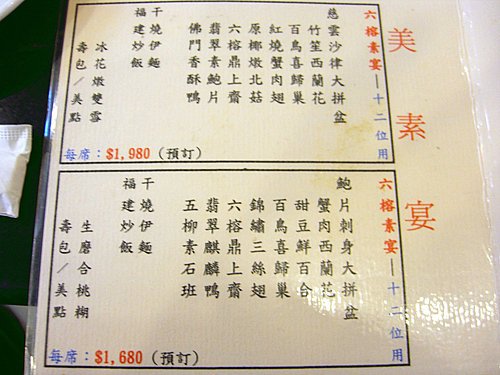 美素宴
六榕素宴—十二位用
慈雲沙律大拼盆
竹笙西蘭花
百鳥喜歸巢
紅燒蟹肉翅
原椰燉北菇
六榕鼎上齋
翡翠素鮑片
佛門香酥鴨
干燒伊麵
福建炒飯
冰花燉雙雪
壽包／美點
每席：$1,980（預訂）
六榕素宴—十二位用
鮑片刺身大拼盆
蟹肉西蘭花
甜豆鮮百合
百鳥喜歸巢
錦繡三絲翅
六榕鼎上齋
翡翠麒麟鴨
五柳素石班
干燒伊麵
福建炒飯
生磨合桃糊
壽包／美點
每席：$1,680（預訂）